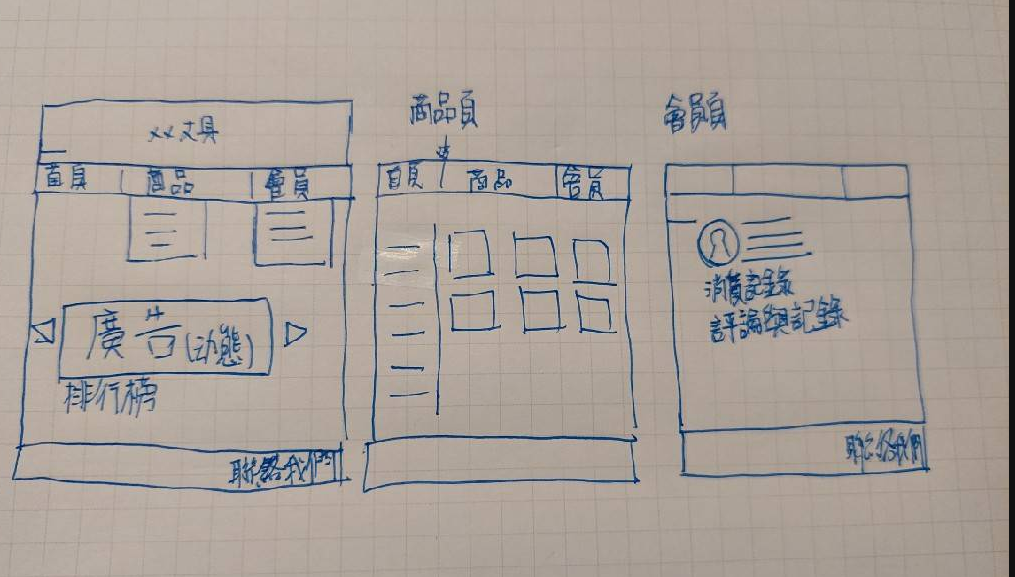 xx文具
首頁 商品 會員
廣告(动態)
排行榜
聯絡我們
商品頁
首頁 商品 會員
會員頁
消費記錄
評論與記錄
聯絡我們